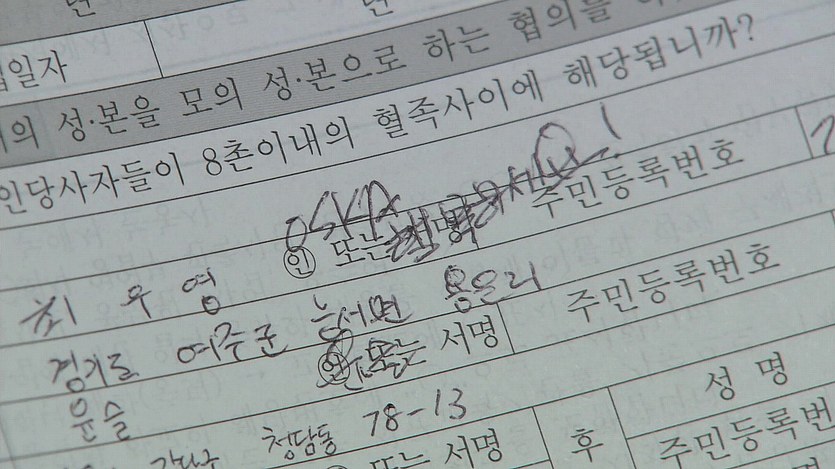 년 년
일자
의 성·본을 모의 성·본으로 하는 협의를
인당사자들이 8촌이내의 혈족사이에 해당됩니까?
OSKA
인 또는 서명 주민등록번호 2
최 우 영
경기도 여주군 능서면 용은리
인 또는 서명 주민등록번호
윤슬
강남구 청담동 78-13
인 또는 서명 후 성 명
주민등록번